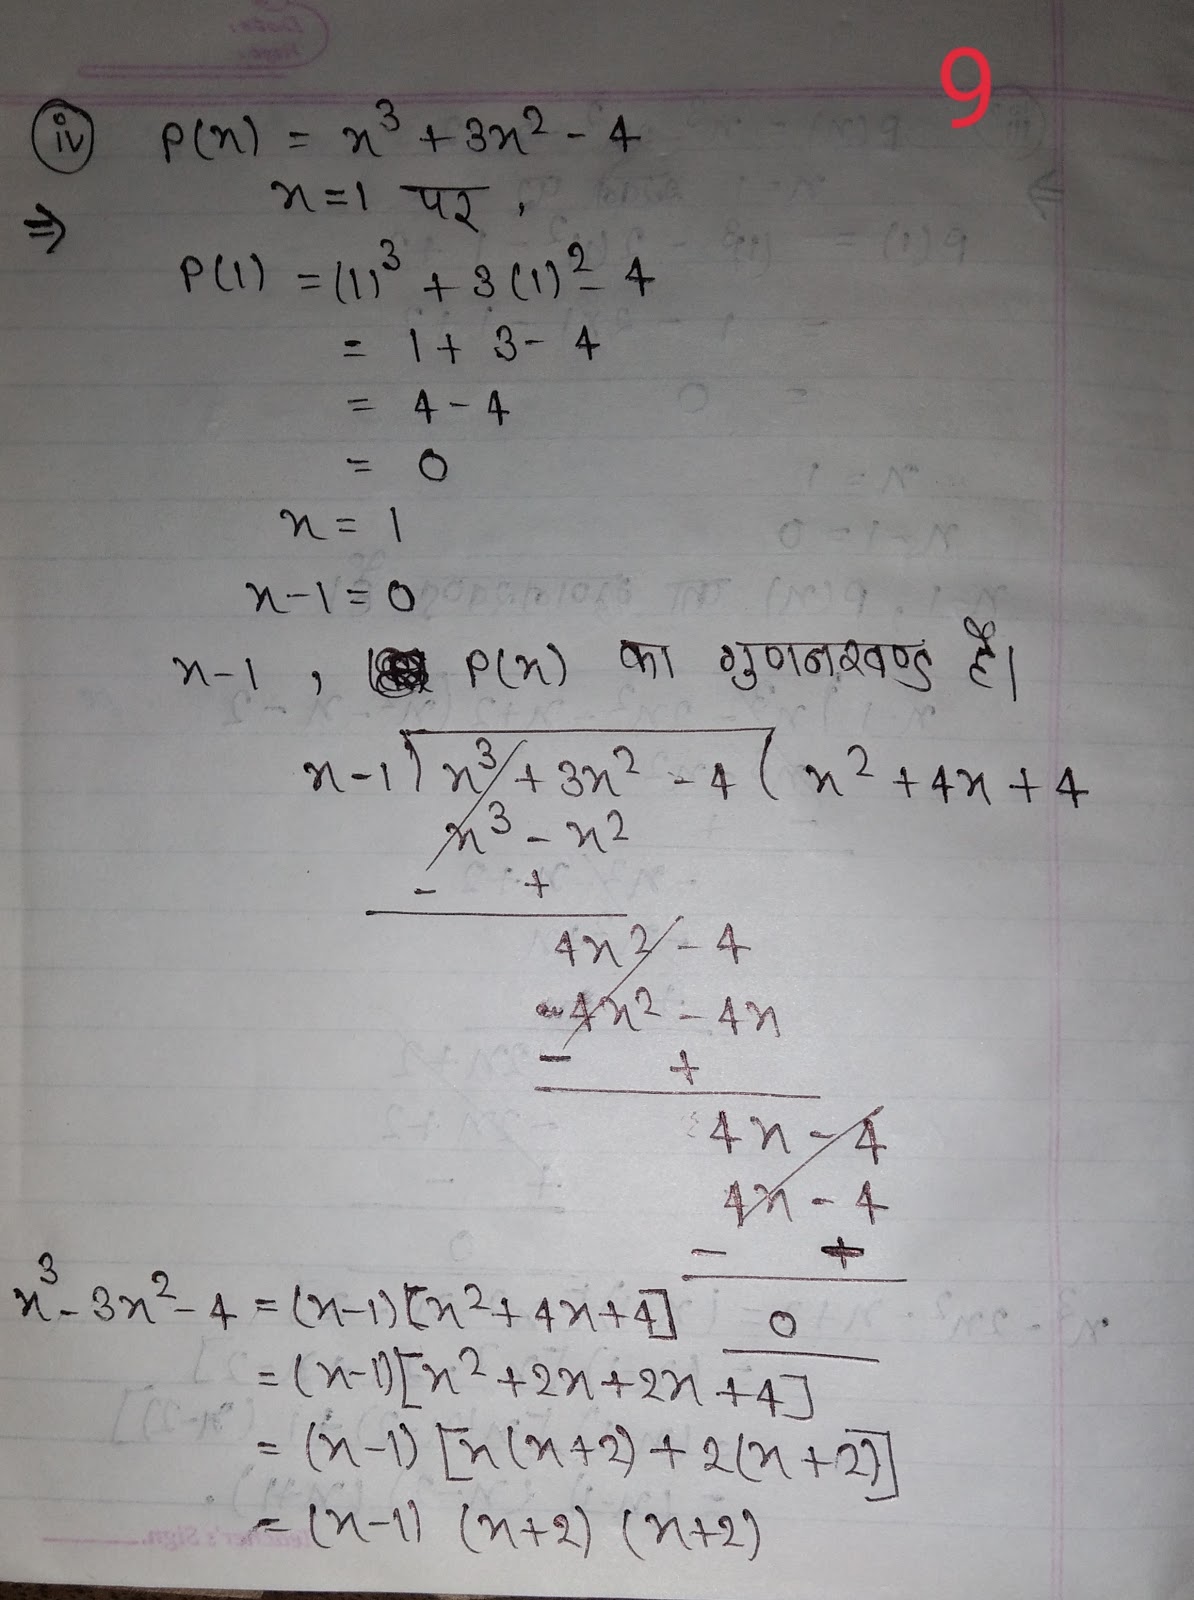 9
(iv) P(x) = x³ + 3x² - 4
⇒ x = 1 पर,
P(1) = (1)³ + 3(1)² - 4
= 1 + 3 - 4
= 4 - 4
= 0
x = 1
x - 1 = 0
x - 1 , P(x) का गुणनखण्ड है।
x - 1 ) x³ + 3x² - 4 ( x² + 4x + 4
x³ - x²
- +
4x² - 4
- 4x² - 4x
- +
4x - 4
4x - 4
- +
0
x³ - 3x² - 4 = (x-1) [x² + 4x + 4]
= (x-1) [x² + 2x + 2x + 4]
= (x-1) [x(x+2) + 2(x+2)]
= (x-1) (x+2) (x+2)